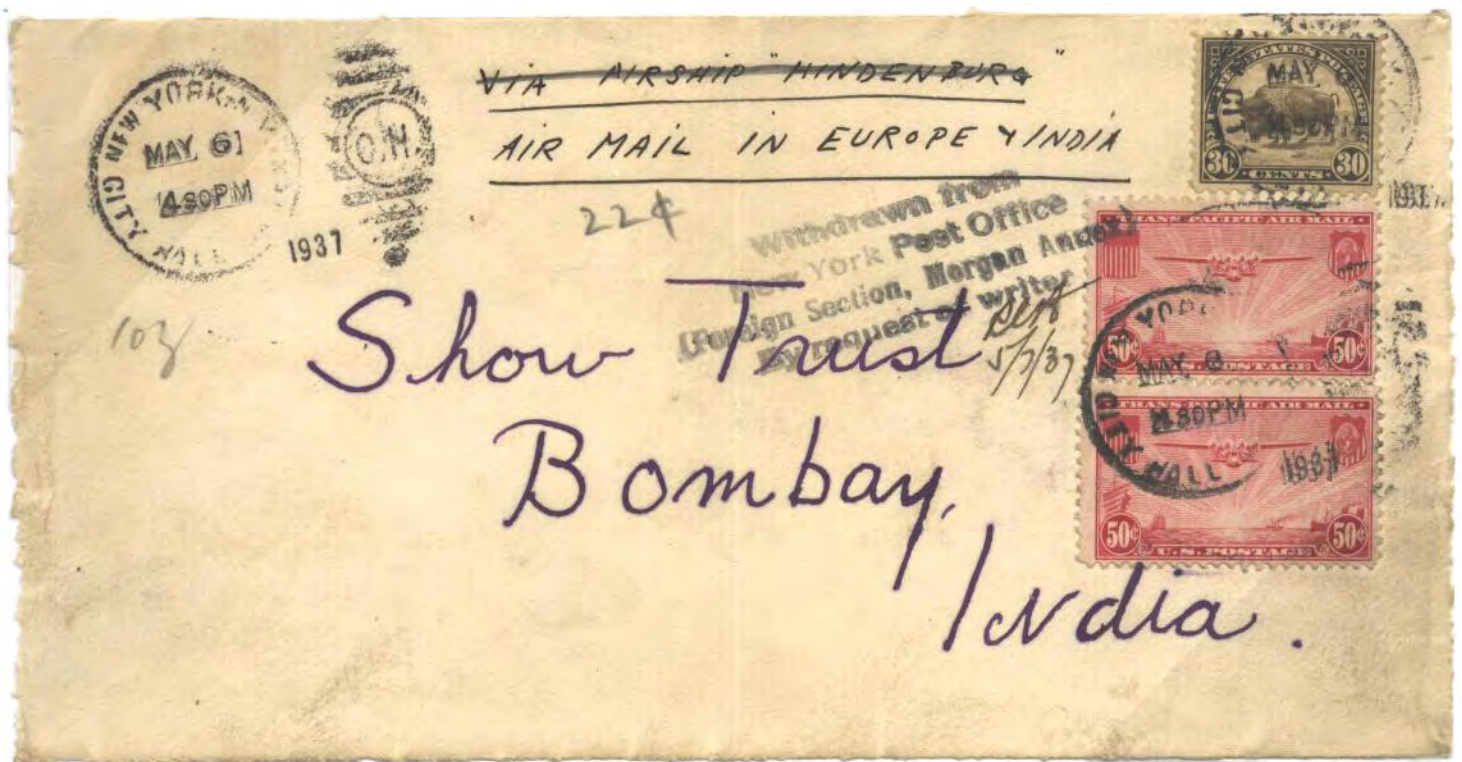 CITY HALL NEW YORK, N.Y.
MAY 6
4 30 PM
1937
C.H.
VIA AIRSHIP "HINDENBURG"
AIR MAIL IN EUROPE & INDIA
22¢
Withdrawn from
New York Post Office
(Foreign Section, Morgan Annex)
By request of writer
5/7/37
Show Trust
Bombay,
India.
UNITED STATES POSTAGE
30 30
CENTS
MAY
4 30 PM
1937
TRANS-PACIFIC AIR MAIL
50¢ 50¢
U.S. POSTAGE
MAY 6
4 30 PM
CITY HALL
1937
TRANS-PACIFIC AIR MAIL
50¢ 50¢
U.S. POSTAGE